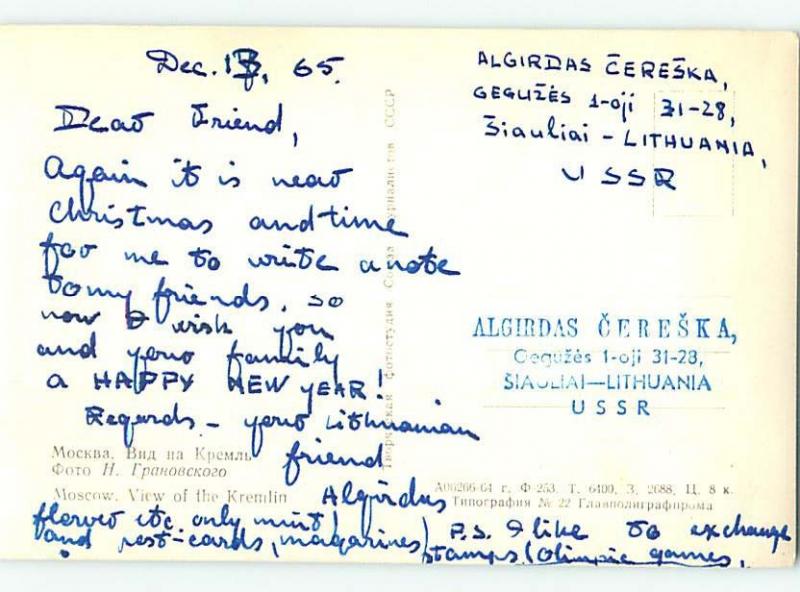 Dec. 13, 65.
Dear Friend,
Again it is near
christmas and time
for me to write a note
to my friends, so
now I wish you
and your family
a HAPPY NEW YEAR!
Regards - your Lithuanian
friend
Algirdas
P.S. I like to exchange
stamps (Olimpic games,
flower etc. only mint)
and post-cards, magazines
ALGIRDAS ČEREŠKA,
GEGUŽĖS 1-oji 31-28,
Šiauliai - LITHUANIA,
USSR
ALGIRDAS ČEREŠKA,
Gegužės 1-oji 31-28,
ŠIAULIAI—LITHUANIA
USSR
Творческая фотостудия Союза журналистов СССР
Москва. Вид на Кремль
Фото Н. Грановского
Moscow. View of the Kremlin
А06266-64 г. Ф-253. Т. 6400. З. 2688. Ц. 8 к.
Типография № 22 Главполиграфпрома